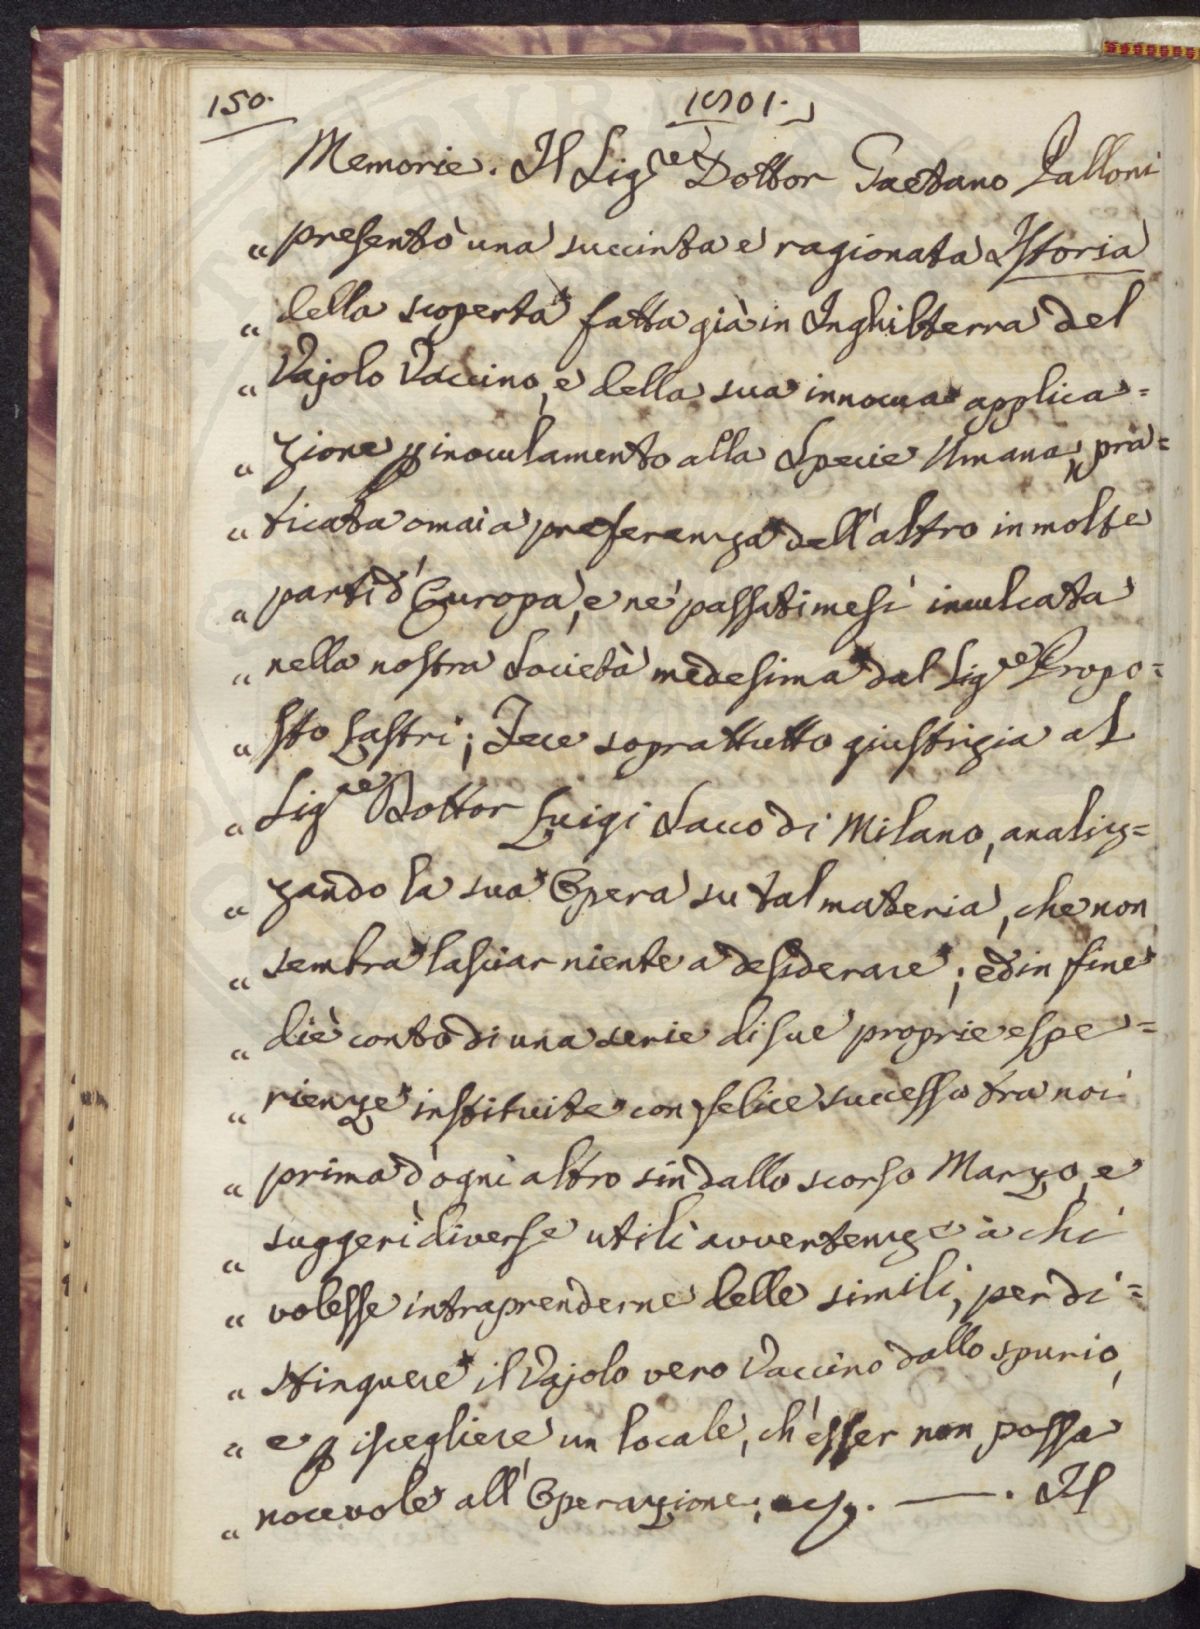 150. 1801.
Memorie. Il Sig.re Dottor Gaetano Palloni
„ presentò una succinta e ragionata Istoria
„ della scoperta fatta già in Inghilterra del
„ Vajolo Vaccino, e della sua innocua applica=
„ zione p inoculamento alla Specie Umana, pra=
„ ticata omai a preferenza dell'altro in molte
„ parti d'Europa, e ne' passati mesi inculcata
„ nella nostra Società medesima dal Sig.re Propo=
„ sto Lastri; Fece soprattutto giustizia al
„ Sig.re Dottor Luigi Sacco di Milano, analiz=
„ zando la sua Opera su tal materia, che non
„ sembra lasciar niente a desiderare; ed in fine
„ diè conto di una serie di sue proprie espe=
„ rienze instituite con felice successo tra noi
„ prima d'ogni altro sin dallo scorso Marzo, e
„ suggerì diverse utili avvertenze a chi
„ volesse intraprenderne delle simili, per di=
„ stinguere il Vajolo vero Vaccino dallo spurio,
„ e p iscegliere un locale, ch'esser non possa
„ nocevole all'Operazione, — . Il